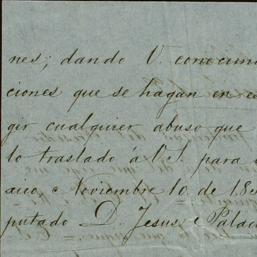 nes; dando V. conocimi
ciones que se hagan en e
gir cualquier abuso que
lo traslado á V.S. para
xico, Noviembre 10 de 18
putado D. Jesus Palac